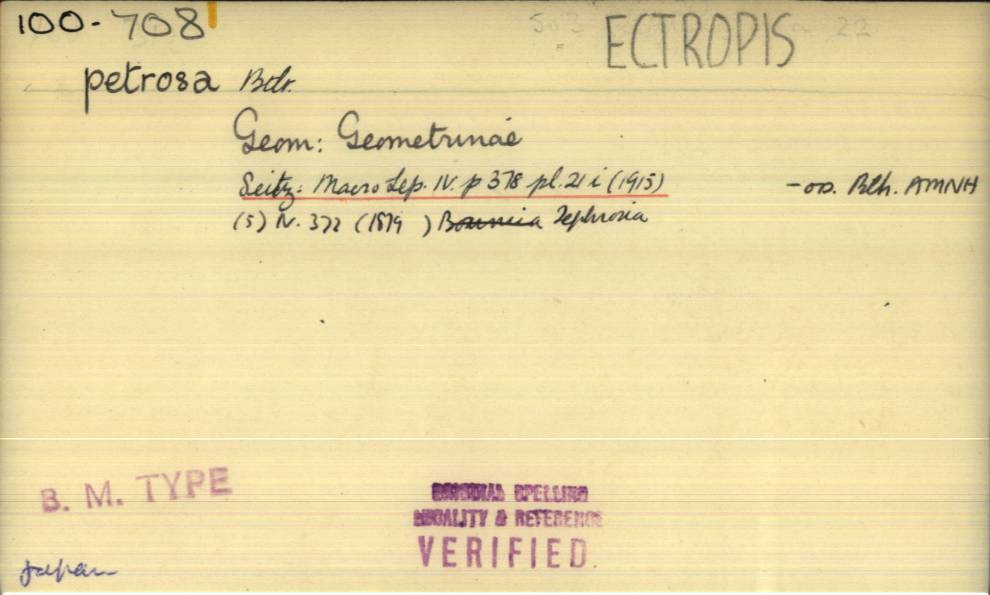 100-708
ECTROPIS
petrosa Btlr.
Geom: Geometrinae
Seitz: Macro Lep. IV. p 378 pl. 21 i (1915)
(5) IV. 372 (1879 ) Tephrosia
B. M. TYPE
SPELLING
LOCALITY & REFERENCE
VERIFIED.
Japan
AMNH